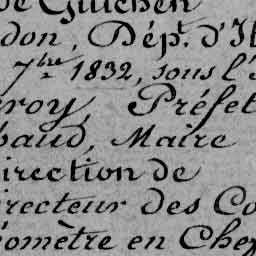 de Guichen
don, Dép.t d'Il
7bre 1832, sous l'
roy, Préfet
baud, Maire
irection de
recteur des Co
éomètre en Chef